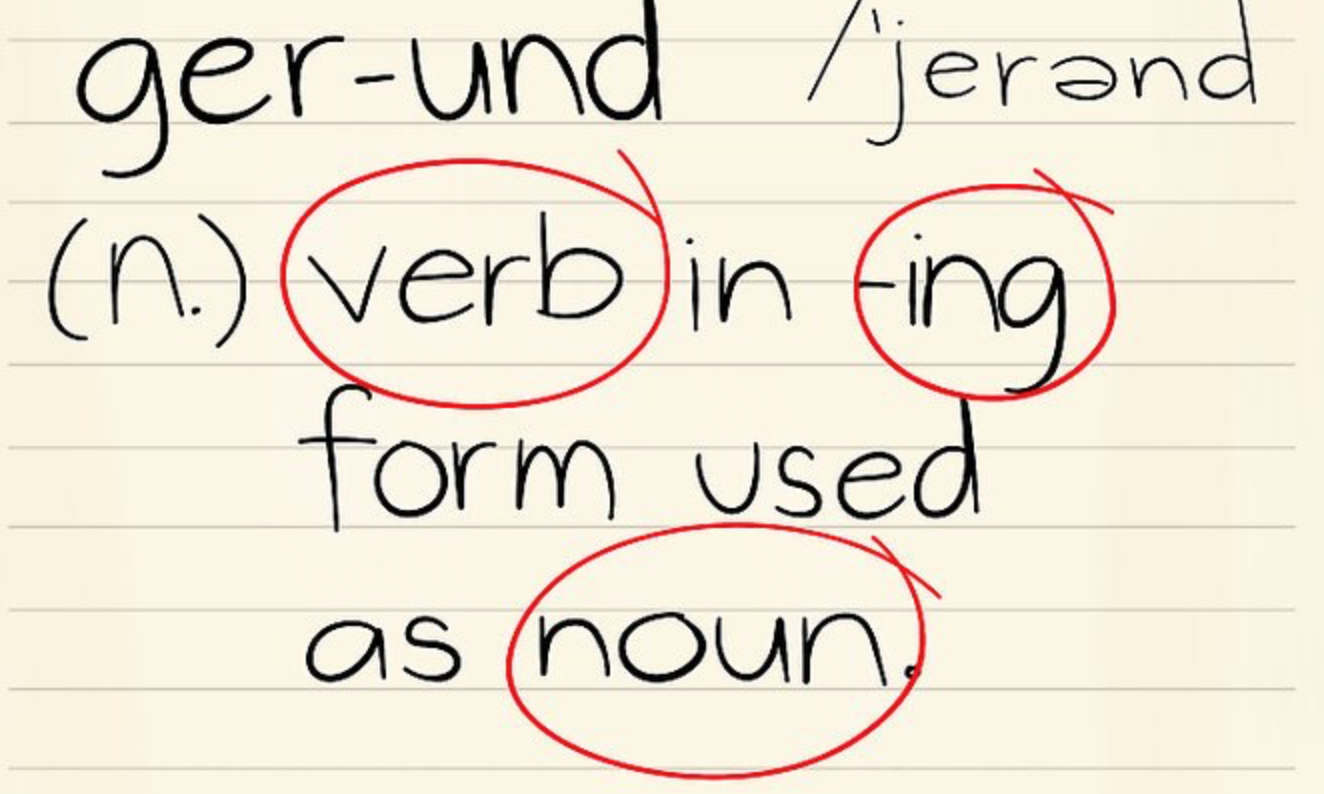 ger-und /ˈjerənd
(n.) verb in -ing
form used
as noun.